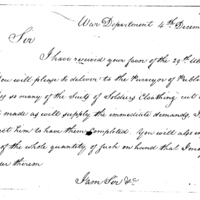 War Department 4th Decem
Sir
I have received your favor of the 29th Ult
you will please to deliver to the Purveyor of Public
so many of the Suits of Soldiers Cloathing cut
made as will supply the immediate demands,
him to have them completed. You will also
of the whole quantity of such on hand that I may
therein
I am Sir &c